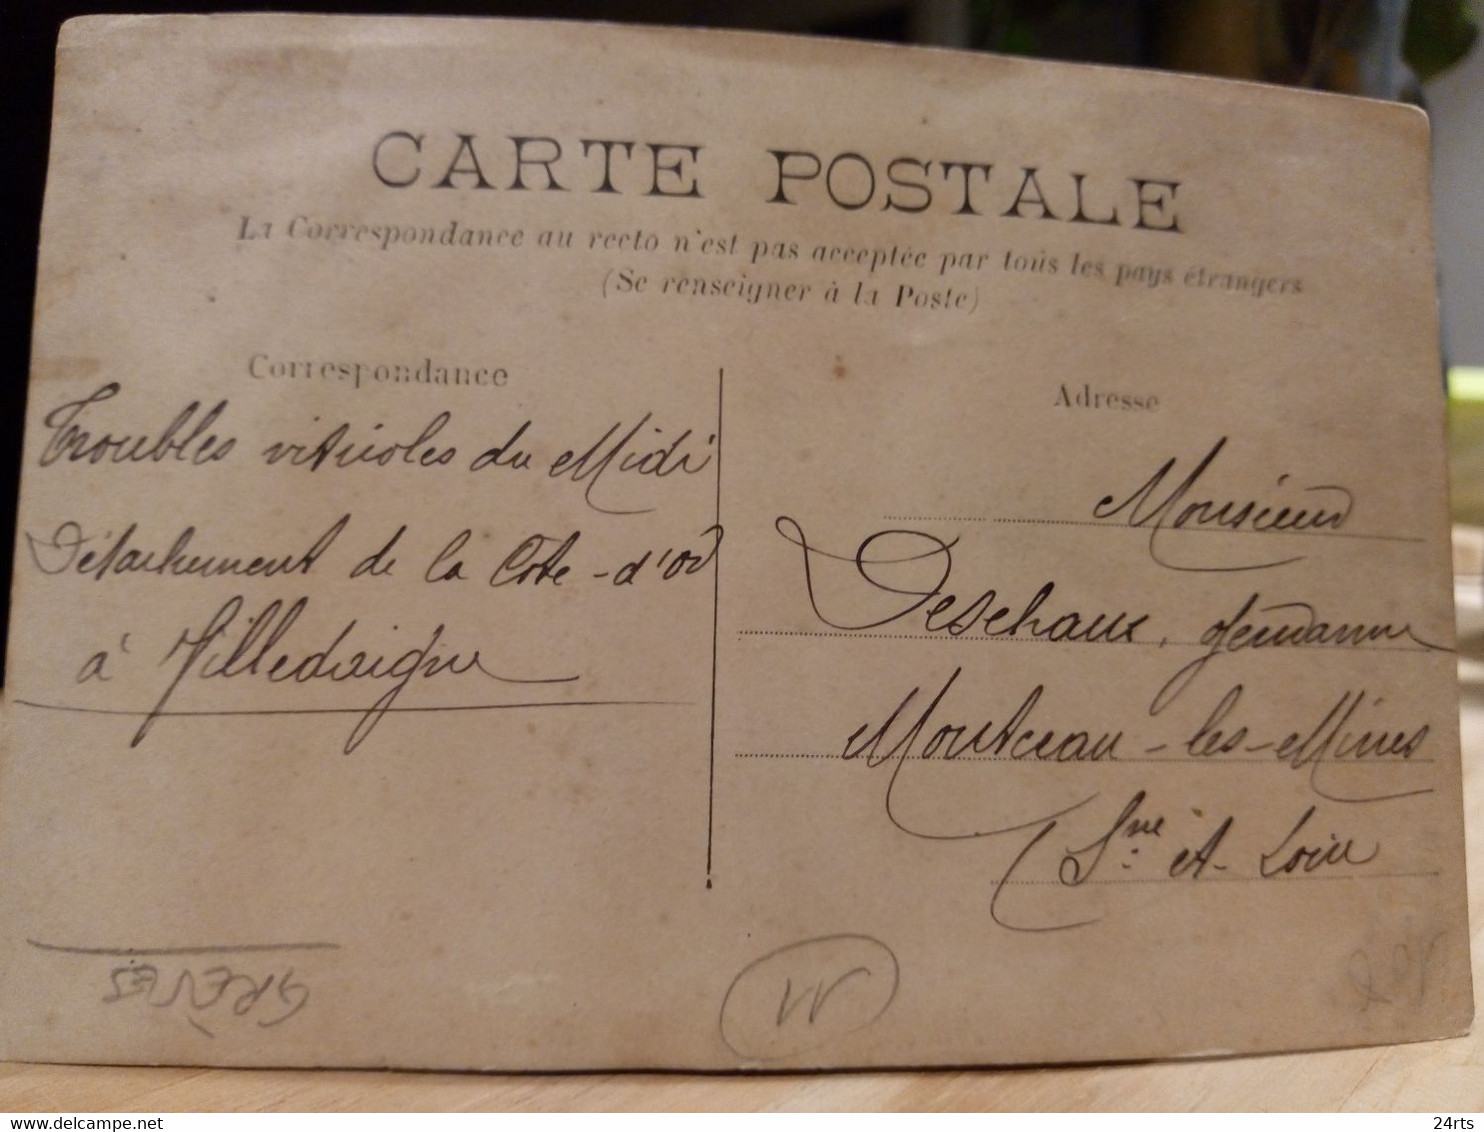 CARTE POSTALE
La Correspondance au recto n'est pas acceptée par tous les pays étrangers
(Se renseigner à la Poste)
Correspondance
Troubles viticoles du Midi
Détachement de la Côte-d'Or
à Villedaigne
Adresse
Monsieur
Deschaux, gendarme
Montceau-les-Mines
(Sne et Loire
GRÈVES
24rts